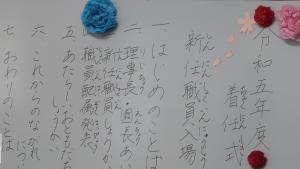 令和五年度
着任式
新任職員入場
一 はじめのことば
二 理事長・園長あい
三 新任職員しょうかい
四 職員配備発表
五 あたらしいおともだち
しょうかい
六 これからのながれ
につい
七 おわりのことば